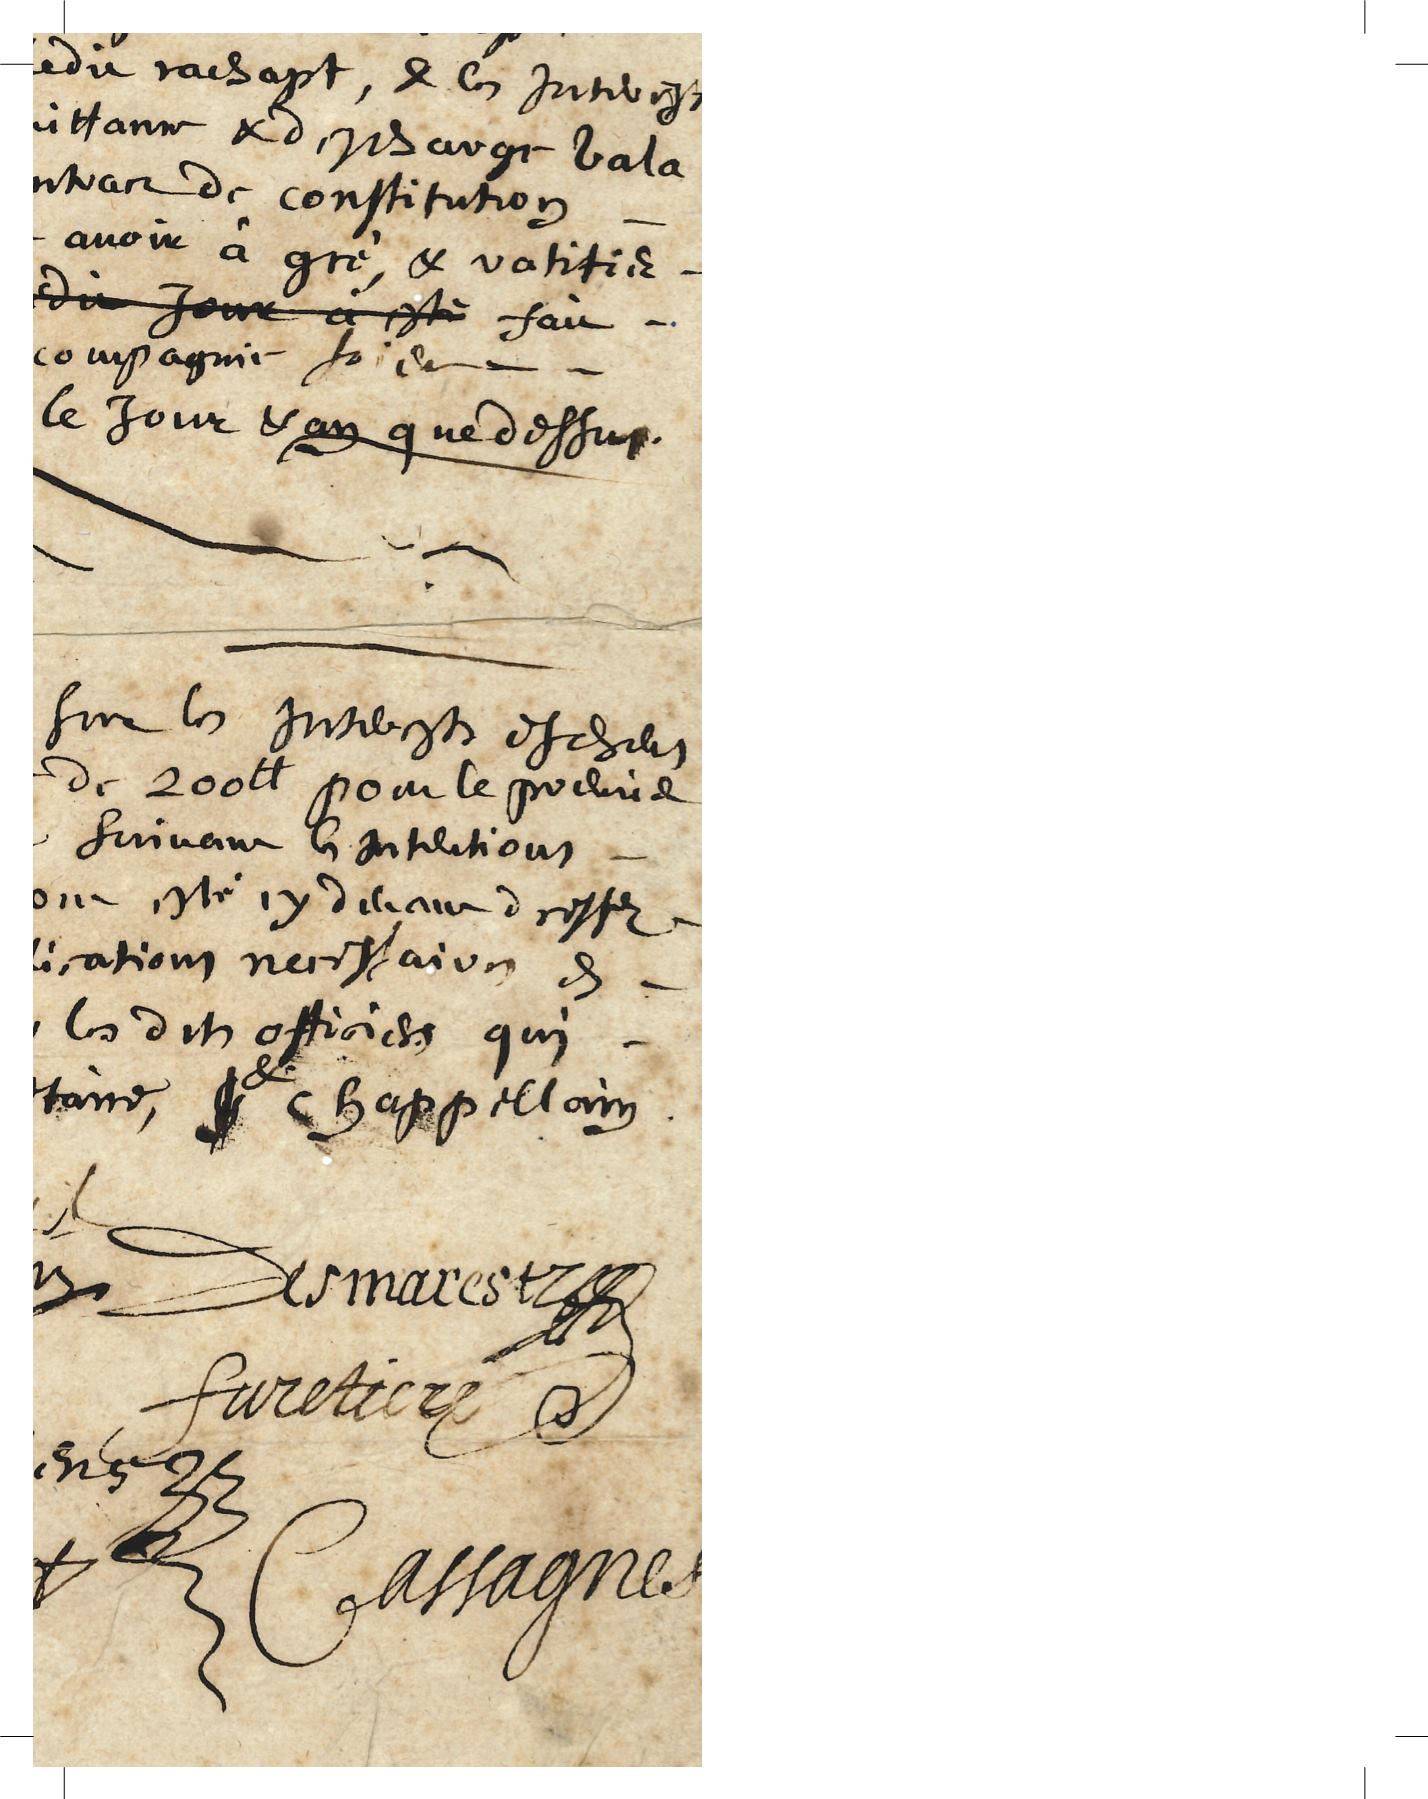 ledit rachapt, & les Interests
uittance & descharge vala
ntract de constitution
avoir à gré, & ratifié
edit Jour à esté fait
compagnie soient
le Jour & an que dessus.
sur les Interests escheus
de 200tt pour le premie
suivant les Intentions
ont esté cy devant dressez
lications necessaires &
les dits officiers qui
ttaire, & chappellain.
Desmarestz
furetiere
ens
Cassagnes